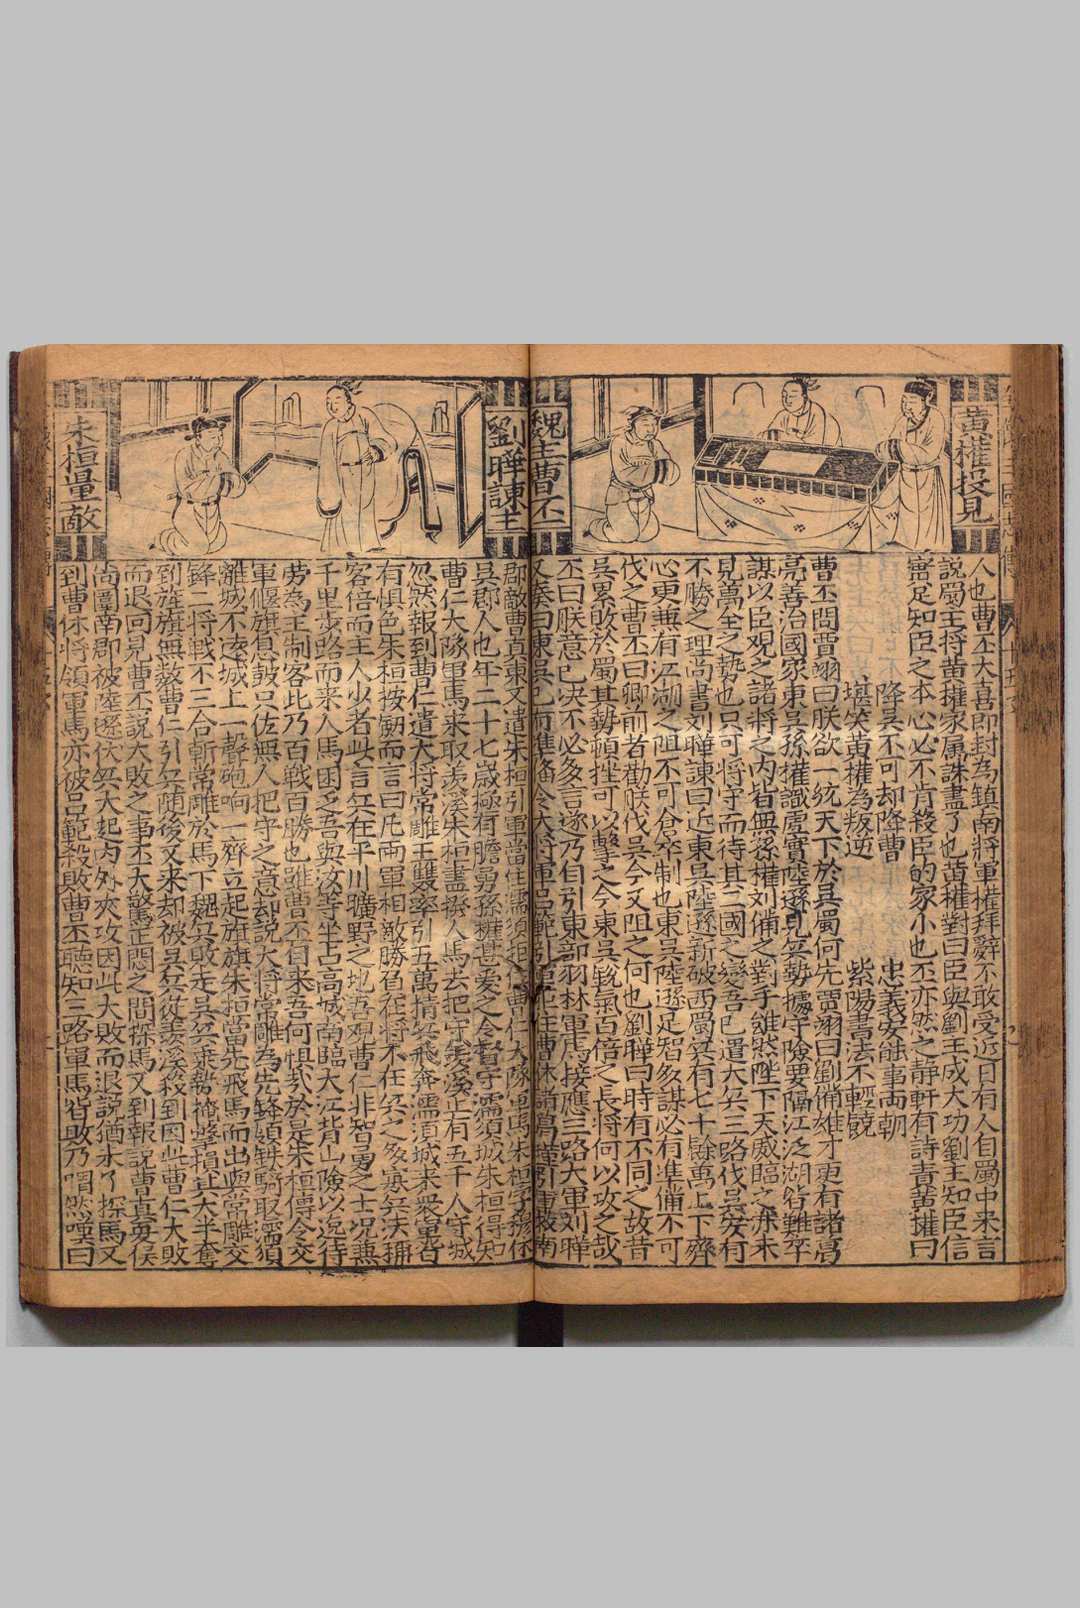 黃權投見
魏主曹丕
人也曹丕大喜即封為鎮南將軍權拜辭不敢受近日有人自蜀中来言
說蜀主将黄權家属誅盡了也黄權對曰臣與劉王成大功劉主知臣信
審足知臣之本心必不肯殺臣的家小也丕亦然之靜軒有詩責黃權曰
降吳不可却降曹 忠義安能事两朝
堪笑黄權為叛逆 紫陽書法不輕饒
曹丕問賈翊曰朕欲一統天下於吳蜀何先賈翊曰劉備雄才更有諸葛
亮善治國家東吳孫權識虛實陸遜見兵勢據守險要隔江泛湖皆難卒
謀以臣观之諸將之内皆無孫權刘備之對手雖然陛下天威臨之亦未
見萬全之势也只可将守而待其二國之變吾已遣大兵三路伐吳安有
不勝之理尚書刘曄諫曰近東吳陸遜新破西蜀兵有七十餘萬上下齊
心更兼有江湖之阻不可倉卒制也東吳陸遜足智多謀必有準備不可
伐之曹丕曰卿前者勸朕伐吳今又阻之何也劉曄曰時有不同之故昔
吳累敗於蜀其勢頓挫可以擊之今東吳銳氣百倍之長將何以攻之哉
丕曰朕意已决不必多言遂乃自引東部羽林軍馬接應三路大軍刘曄
又奏曰東吳已有準备令大將軍吕範引軍
劉曄諫主
朱桓量敵
郡敵曹真東又遣朱桓引軍當住濡須拒
吳郡人也年二十七歲極有膽勇孫權甚爱之令督守濡須城朱桓得知
曹仁大隊軍馬来取羡溪朱桓盡撥人馬去把守羡溪止有五千人守城
忽然報到曹仁遣大将常雕王雙率引五萬精兵飛奔濡須城来衆軍皆
有惧色朱桓按劒而言曰凡兩軍相敵勝負在将不在兵之多寡兵法䟽
客倍而主人少者此言兵在平川曠野之地吾观曹仁非智勇之士况兼
千里步路而来人馬困乏吾與汝等坐占高城南臨大江背山險以逸待
劳為主制客此乃百戦百勝也雖曹丕自来吾何惧哉於是朱桓傳令交
軍偃旗息鼓只佐無人把守之意却說大将常雕為先鋒領鉄騎取濡須
離城不遠城上一聲砲响一齊立起旌旗朱桓當先飛馬而出與常雕交
鋒二将戦不三合斬常雕於馬下魏兵敗走吳兵乘勢掩殺損兵大半奪
到旌旗無数曹仁引兵随後又来却被吳兵從羡溪殺到因此曹仁大敗
而退回見曹丕說大敗之事丕大驚正悶之間探馬又到報說曹真夏侯
尚圍南郡被陸遜伏兵大起内外夾攻因此大敗而退說猶未了探馬又
到曹休将領軍馬亦被吕範殺敗曹丕聽知三路軍馬皆敗乃喟然嘆曰